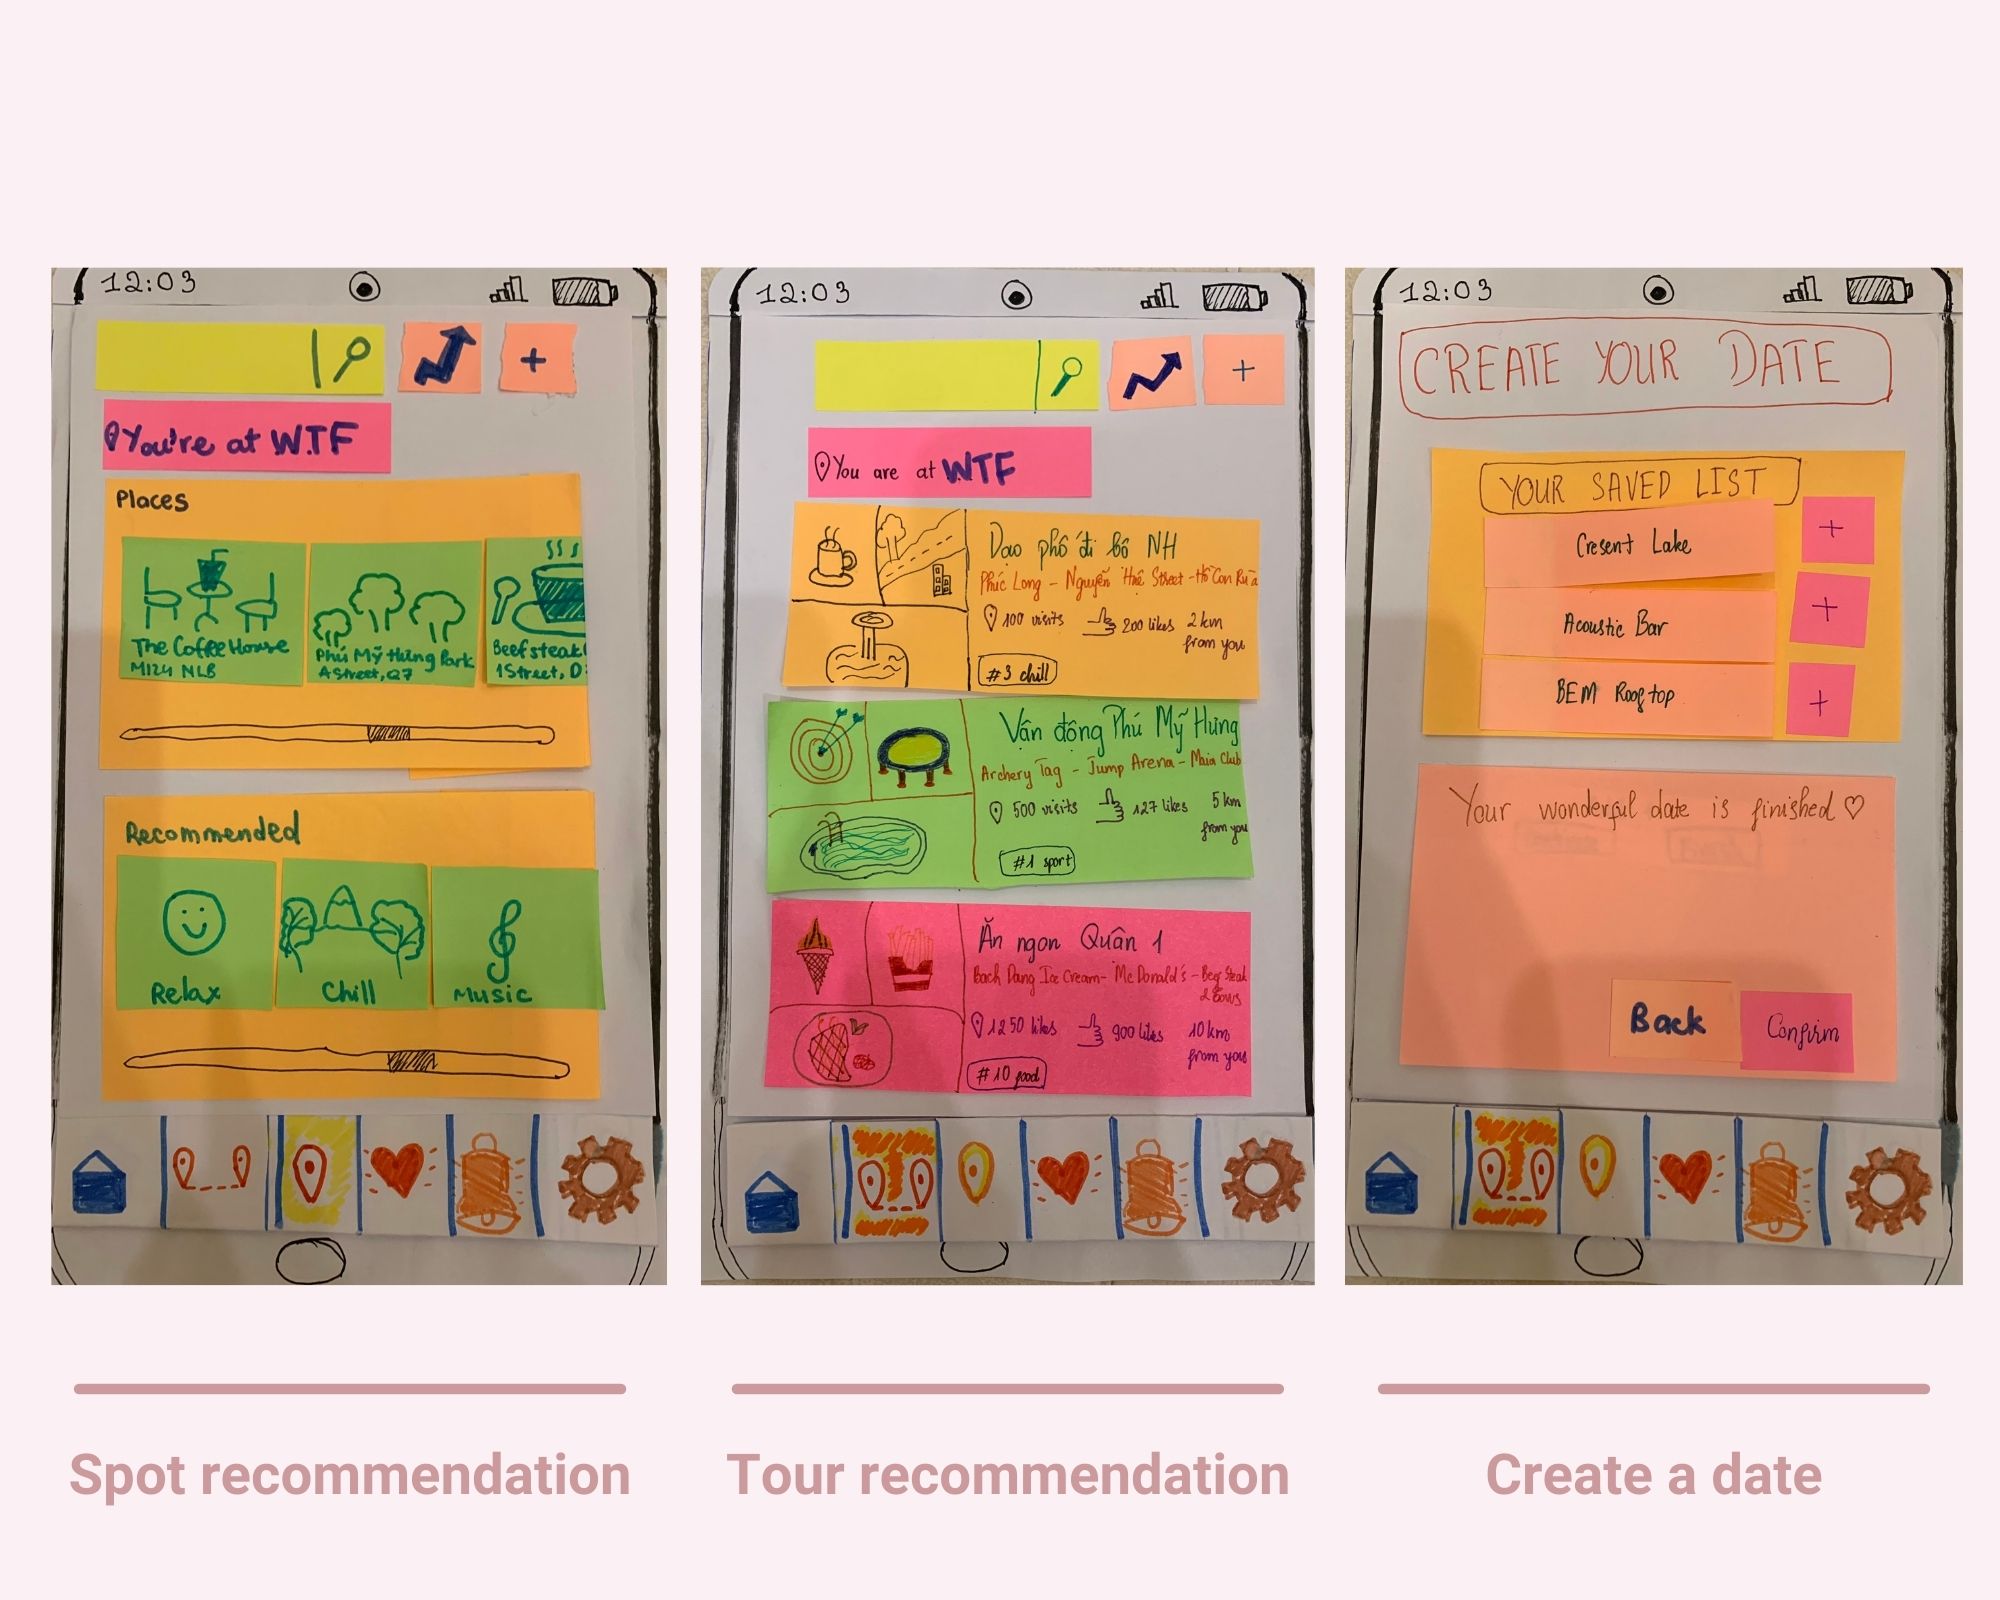 12:03
+
You're at W.T.F
Places
The Coffee House
M124 NLB
Phú Mỹ Hưng Park
A Street, Q7
Beefsteak
1 Street, D
Recommended
Relax
Chill
Music
Spot recommendation
12:03
+
You are at WTF
Dạo phố đi bộ NH
Phúc Long - Nguyễn Huệ Street - Hồ Con Rùa
100 visits
200 likes
2 km
from you
#3 chill
Vận động Phú Mỹ Hưng
Archery Tag - Jump Arena - Maia Club
500 visits
127 likes
5 km
from you
#1 sport
Ăn ngon Quân 1
Bach Dang Ice Cream - Mc Donald's - Beef Steak
1250 likes
900 likes
10 km
from you
#10 food
Tour recommendation
12:03
CREATE YOUR DATE
YOUR SAVED LIST
Cresent Lake
+
Acoustic Bar
+
BEM Rooftop
+
Your wonderful date is finished ♡
Back
Confirm
Create a date